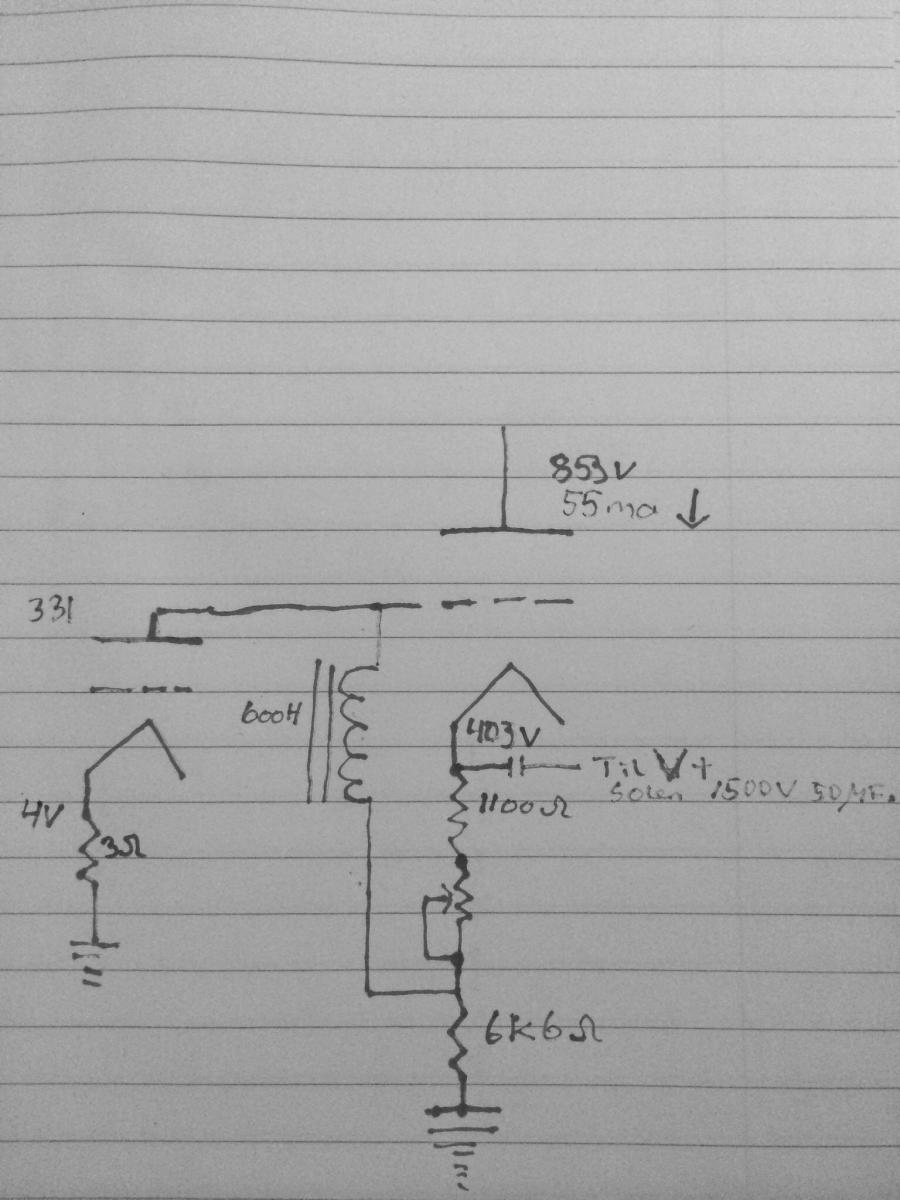 853V
55ma
331
600H
403V
Til V+
Solen 1500V 50µF.
1100Ω
4V
3Ω
6K6Ω